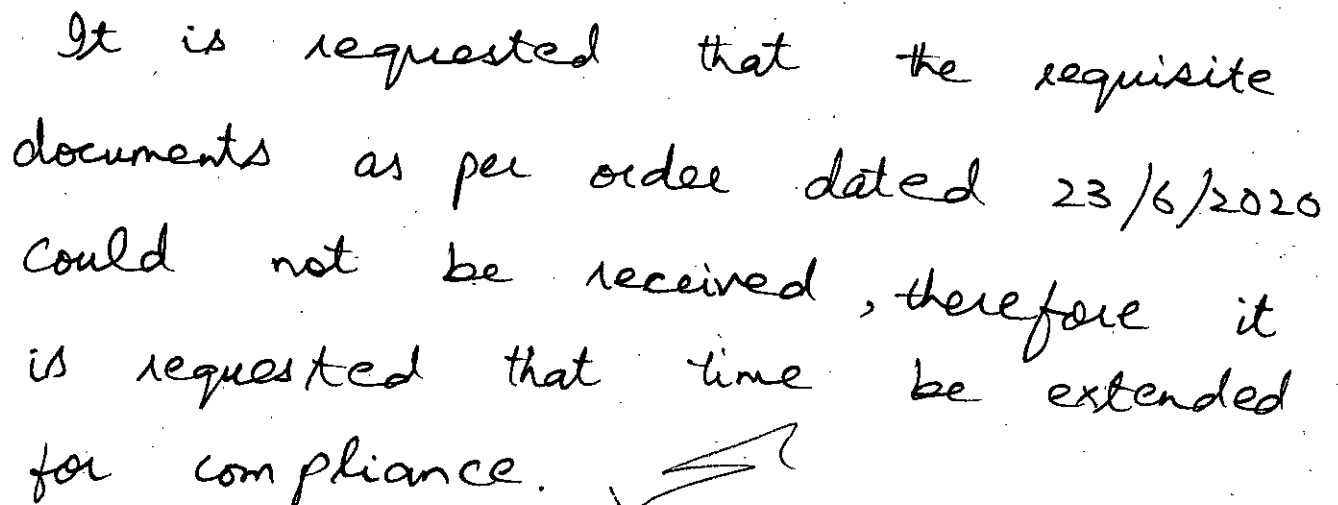 It is requested that the requisite
documents as per order dated 23/6/2020
could not be received, therefore it
is requested that time be extended
for compliance.